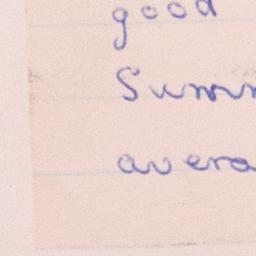 good
Summ
avera